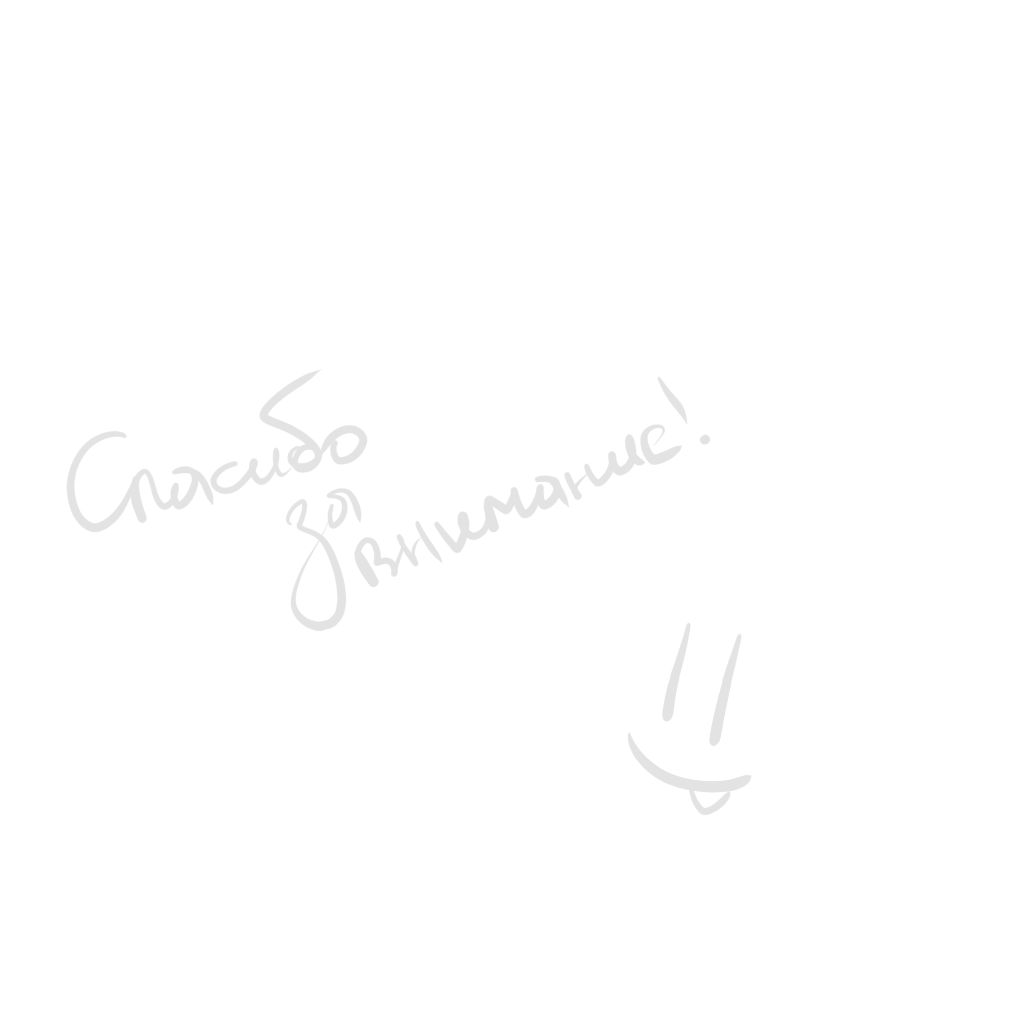 Спасибо
за
внимание!